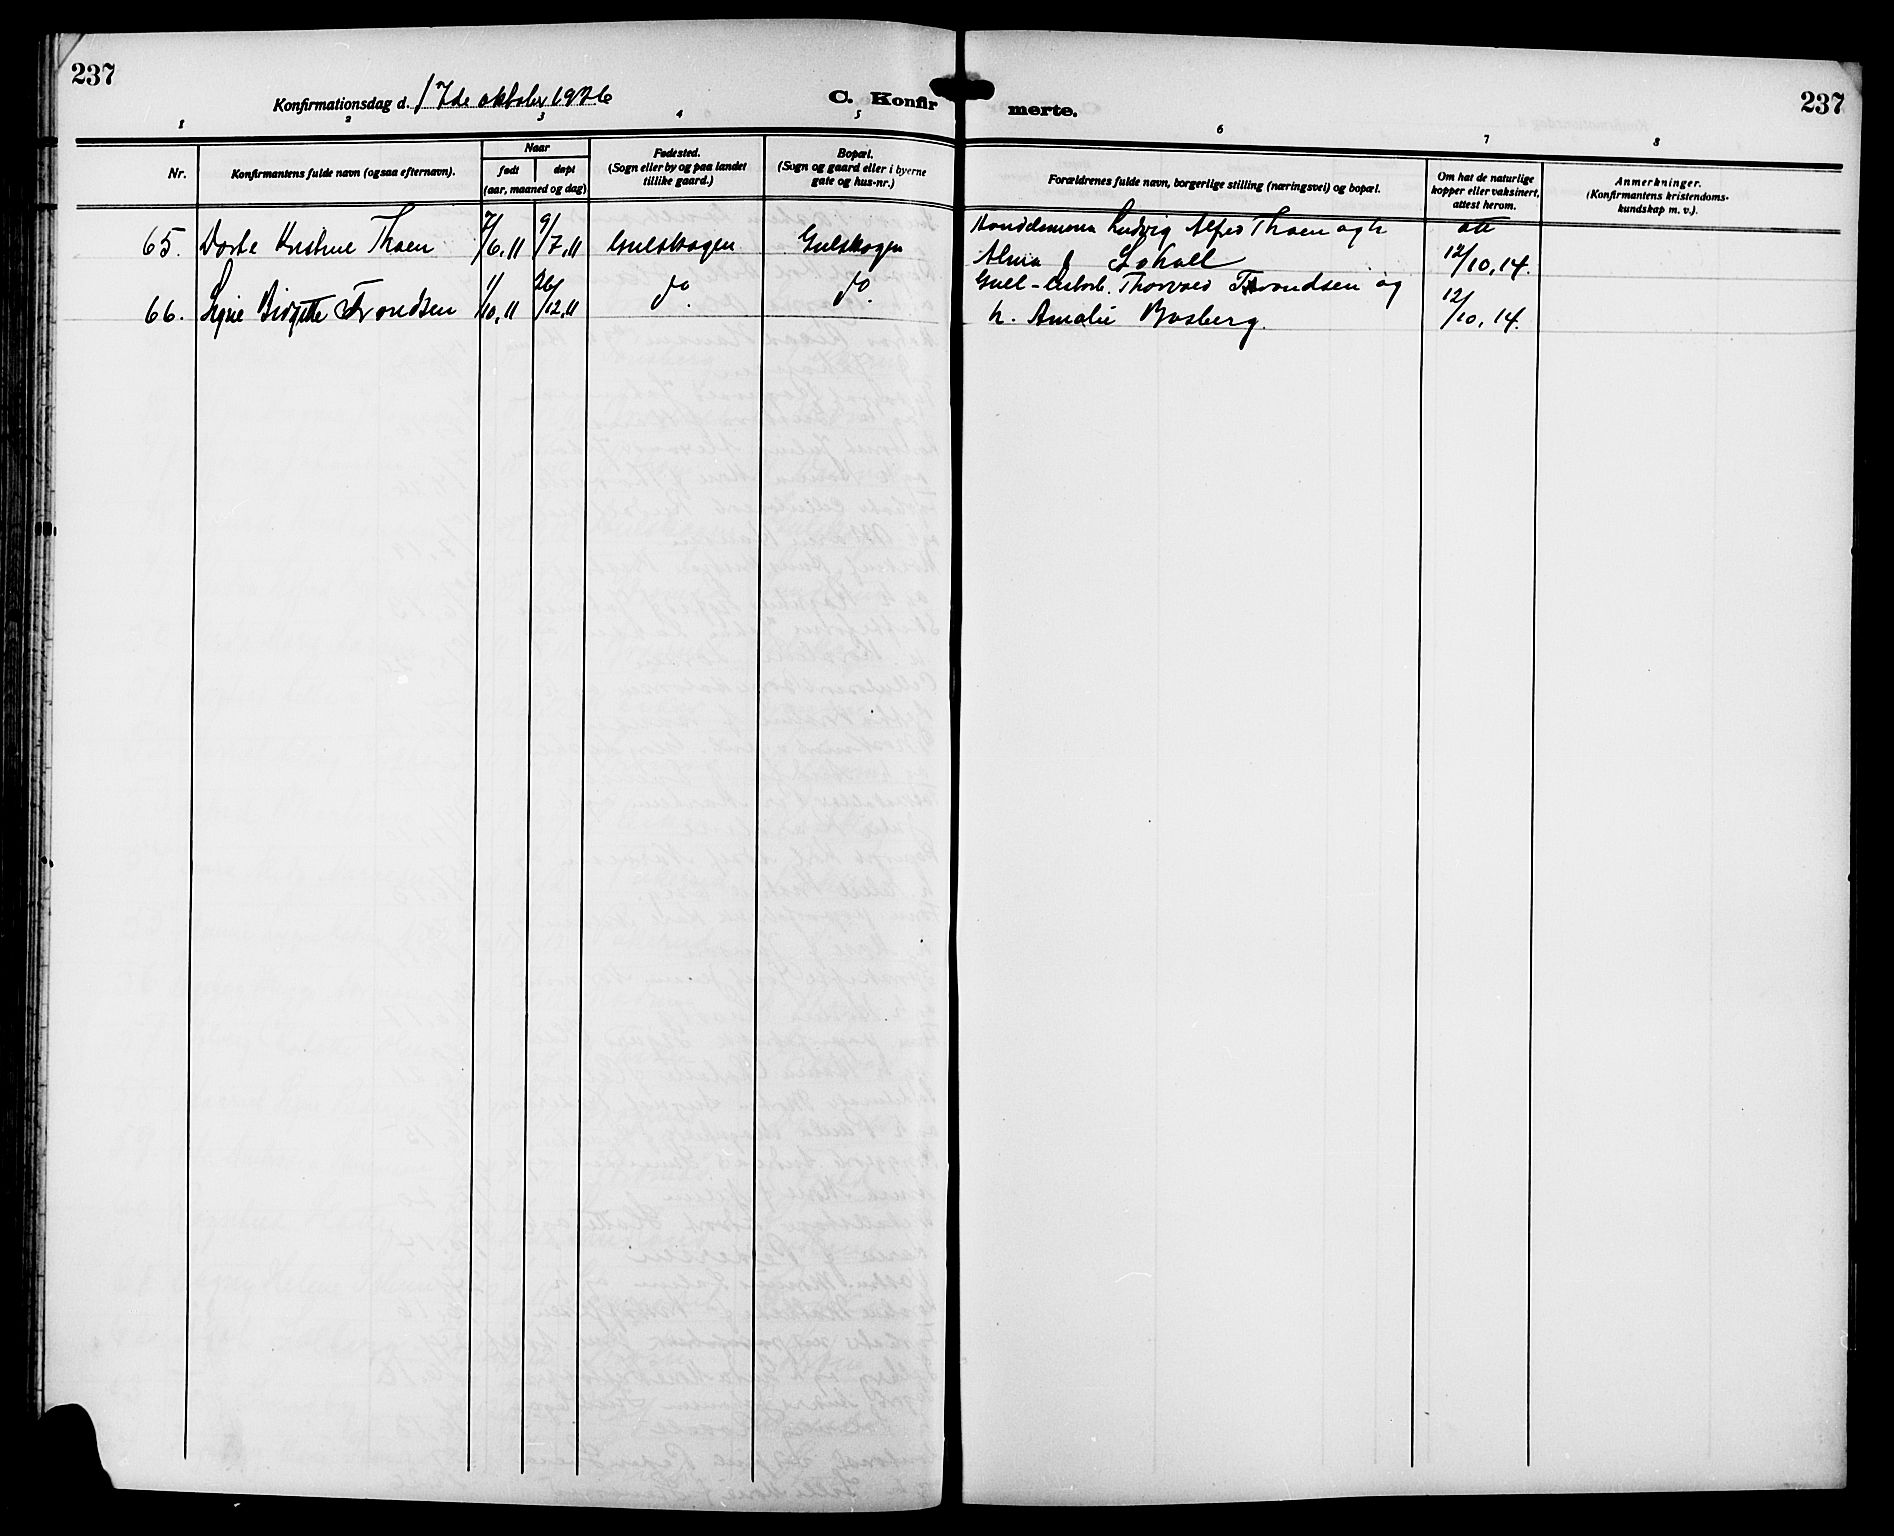 237
Konfirmationsdag d. 17de oktober 1926
C. Konfirmerte.
237
1 2 3 4 5 6 7 8
Nr.
Konfirmantens fulde navn (ogsaa efternavn).
Naar
født
døpt
(aar, maaned og dag)
Fødested.
(Sogn eller by og paa landet
tillike gaard.)
Bopæl.
(Sogn og gaard eller i byerne
gate og hus-nr.)
Forældrenes fulde navn, borgerlige stilling (næringsvei) og bopæl.
Om hat de naturlige
kopper eller vaksinert,
attest herom.
Anmerkninger.
(Konfirmantens kristendoms-
kundskap m. v.).
65. Dorte Kristine Thoen 7/6, 11 9/7, 11 Gulskogen Gulskogen Ludvig Alfred Thoen og h att
Alma f 12/10, 14.
66. Signe Birgitte Trondsen 1/10, 11 26/12, 11 do do. Thorvald Trondsen og 12/10, 14.
h. Amalie Bosberg.